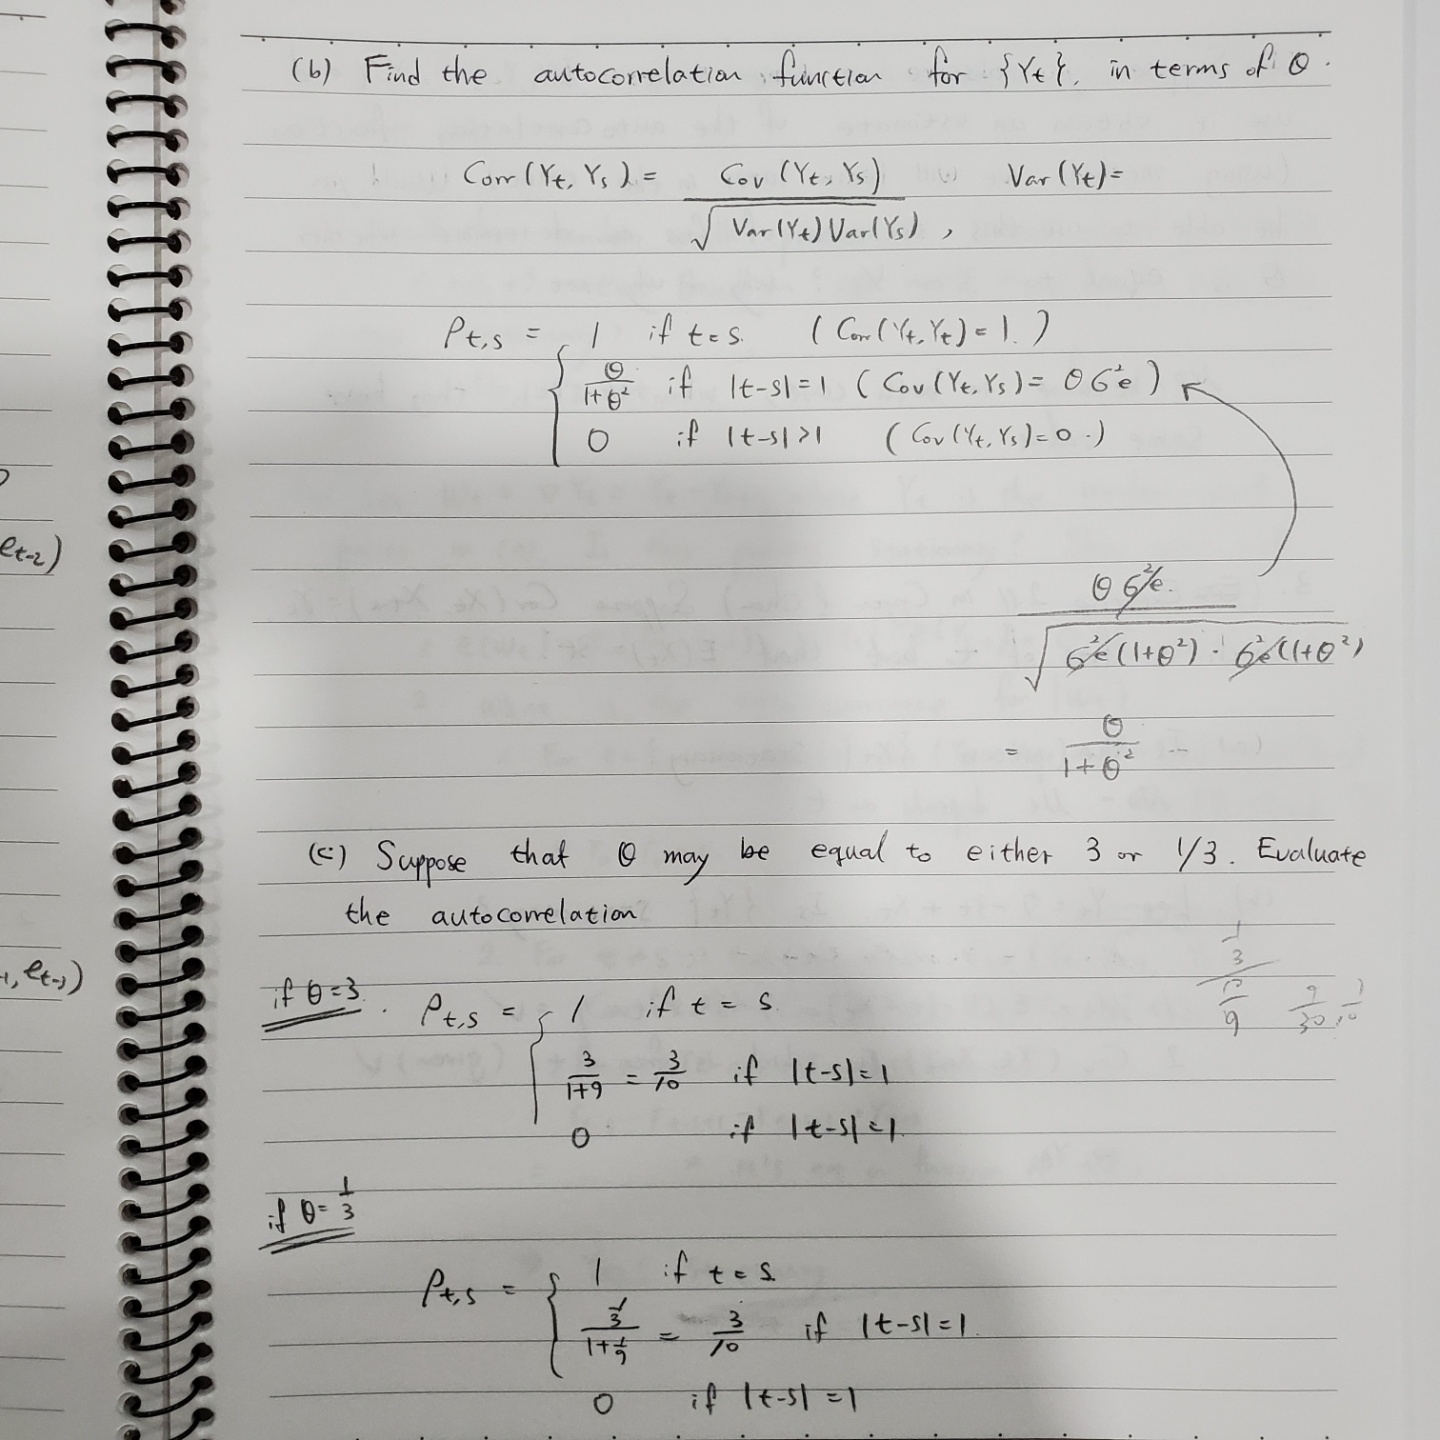 (b) Find the autocorrelation function for {Yt}, in terms of θ.
Corr(Yt, Ys) = Cov(Yt, Ys) Var(Yt)=
√Var(Yt)Var(Ys) ,
ρt,s = { 1 if t=s. (Corr(Yt,Yt)=1.)
θ/1+θ² if |t-s|=1 (Cov(Yt,Ys)= θσ²e)
0 if |t-s|>1 (Cov(Yt,Ys)=0.)
et-2)
θσ²e.
√σ²e(1+θ²)·σ²e(1+θ²)
= θ/1+θ²
(c) Suppose that θ may be equal to either 3 or 1/3. Evaluate
the autocorrelation
, et-3)
if θ=3. ρt,s = { 1 if t = s
3/1+9 = 3/10 if |t-s|=1
0 if |t-s|=1.
if θ=1/3
ρt,s = { 1 if t=s.
1/3/1+1/9 = 3/10 if |t-s|=1.
0 if |t-s|=1